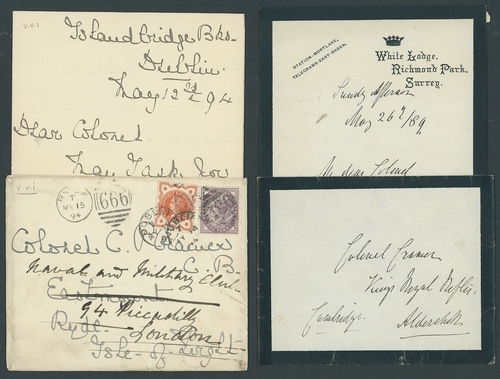 V.V.I
Islandbridge Bks.
Dublin.
May 12 94
Dear Colonel
May I ask
STATION-MORTLAKE,
TELEGRAMS-EAST-SHEEN.
White Lodge,
Richmond Park,
Surrey.
Sunday afternoon
May 26 /89.
My dear Colonel
V.V.I
RYDE
MY 15
94
666
Colonel C.
C. B.
Naval and Military Club
Eastmount
94 Piccadilly
Ryde
London
Isle-of-Wight
Colonel Cramer
Kings Royal Rifles
Cambridge.
Aldershot